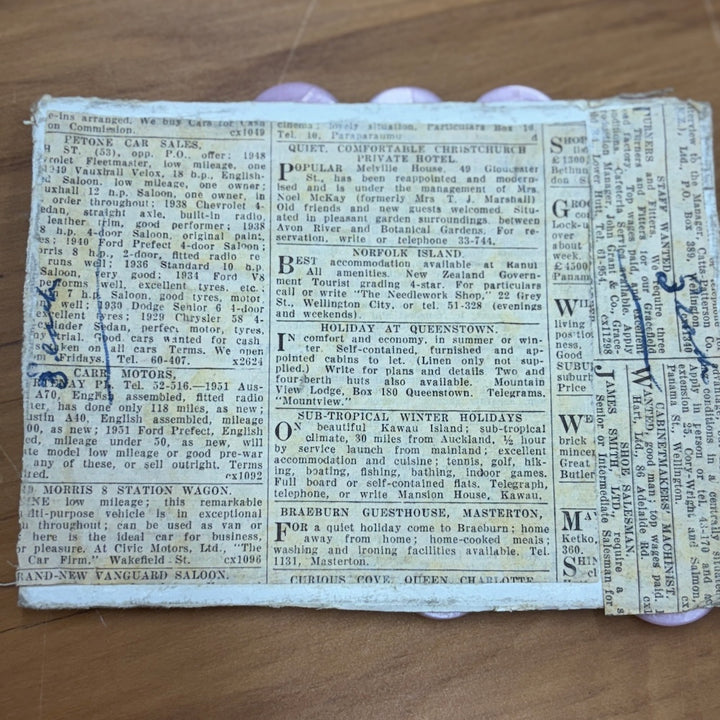 e-ins arranged. We buy Cars for Cash
on Commission. cx1049
PETONE CAR SALES,
ST. (53), opp. P.O., offer; 1948
vrolet Fleetmaster, low mileage, one
1939 Vauxhall Velox, 18 h.p., English-
ed Saloon, low mileage, one owner;
uxhall, 12 h.p. Saloon, one owner, in
order throughout; 1938 Chevrolet 4-
edan, straight axle, built-in radio,
eather trim, good performer; 1938
8 h.p. 4-door Saloon, original paint,
es; 1940 Ford Prefect 4-door Saloon;
rris 8 h.p., 2-door, fitted radio re
runs well; 1936 Standard 10 h.p.
Saloon, very good; 1934 Ford V8
performs well, excellent tyres, etc.;
7 h.p. Saloon, good tyres, motor,
ell; 1939 Dodge Senior 6 4-door
excellent tyres; 1929 Chrysler 58 4-
cylinder Sedan, perfect, motor, tyres,
trial. Good cars wanted for cash
taken on all cars Terms. We open
Fridays. Tel. 60-407. x2624
CARR MOTORS,
PL. Tel. 52-516.—1951 Aus-
A70, English assembled, fitted radio
er, has done only 118 miles, as new;
ustin A40, English assembled, mileage
00, as new; 1951 Ford Prefect, English
ed, mileage under 50, as new, will
te model low mileage or good pre-war
any of these, or sell outright. Terms
ired. cx1092
9 MORRIS 8 STATION WAGON.
INE low mileage; this remarkable
ulti-purpose vehicle is in exceptional
n throughout; can be used as van or
here is the ideal car for business,
or pleasure. At Civic Motors, Ltd., "The
Car Firm," Wakefield St. cx1096
RAND-NEW VANGUARD SALOON.
cinema; lovely situation. Particulars Box
Tel. 10, Paraparaumu d
QUIET, COMFORTABLE CHRISTCHURCH
PRIVATE HOTEL.
POPULAR Melville House, 49 Gloucester
St., has been reappointed and modern-
ised and is under the management of Mrs.
Noel McKay (formerly Mrs T. J. Marshall)
Old friends and new guests welcomed Situ-
ated in pleasant garden surroundings between
Avon River and Botanical Gardens. For re-
servation, write or telephone 33-744.
NORFOLK ISLAND.
BEST accommodation available at Kanui
All amenities. New Zealand Govern-
ment Tourist grading 4-star. For particulars
call or write "The Needlework Shop," 22 Grey
St., Wellington City, or tel. 51-328 (evenings
and weekends).
HOLIDAY AT QUEENSTOWN.
IN comfort and economy, in summer or win-
ter. Self-contained, furnished and ap-
pointed cabins to let. (Linen only not sup-
plied.) Write for plans and details Two and
four-berth huts also available. Mountain
View Lodge, Box 180 Queenstown. Telegrams.
"Mountview."
SUB-TROPICAL WINTER HOLIDAYS
ON beautiful Kawau Island; sub-tropical
climate, 30 miles from Auckland, ½ hour
by service launch from mainland; excellent
accommodation and cuisine; tennis, golf, hik-
ing, boating, fishing, bathing, indoor games.
Full board or self-contained flats. Telegraph,
telephone, or write Mansion House, Kawau.
BRAEBURN GUESTHOUSE, MASTERTON,
FOR a quiet holiday come to Braeburn; home
away from home; home-cooked meals;
washing and ironing facilities available. Tel.
1131, Masterton.
CURIOUS COVE, QUEEN CHARLOTTE
SHOP
£1300
Bethun
don S
GROC
Lock-u
over
about
week.
£4500
Panam
WILL
living
positio
ness.
Good
SUBU
suburb
Price
WE
brick
mince
Great
Butler
MAY
Ketko,
360.
SHIN
STAFF WANTED
TURNERS and Fitters. We require three
Turners and
CABINETMAKERS' MACHINIST.
WANTED, good man; top wages paid.
Hart, Ltd., 86 Adelaide Rd.
SHOE SALESMEN.
JAMES SMITH, Ltd., require a
Senior or Intermediate Salesman for